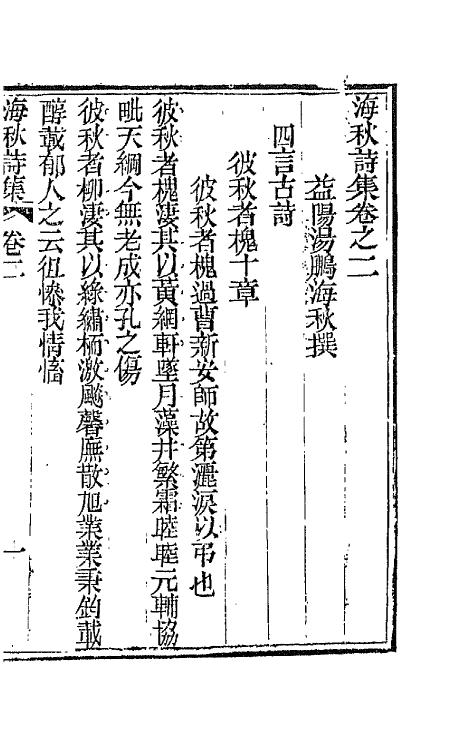 海秋詩集卷之二
益陽湯鵬海秋撰
四言古詩
彼秋者槐十章
彼秋者槐過曹新安師故第灑淚以弔也
彼秋者槐淒其以黃網軒墜月藻井繁霜睦睦元輔協
毗天綱今無老成亦孔之傷
彼秋者柳淒其以綠繡桷激飈馨廡散旭業業秉鈞載
醇載郁人之云徂慘我情慉
海秋詩集 卷二 一